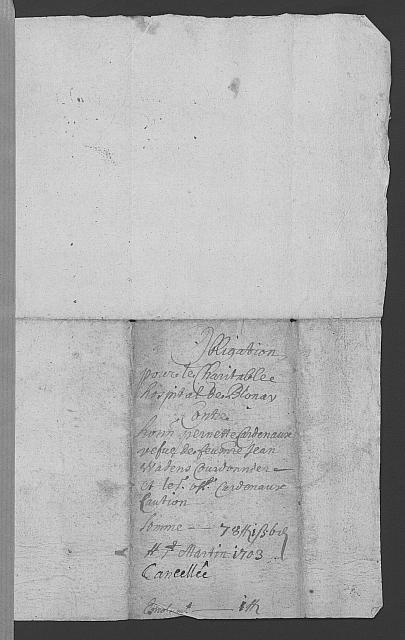 Obligation
pour le Charitable
hospital de Blonay
Contre
honn. pernette Cardenaux
vefue de feu me Jean
Wadens Courdonnier
et le Sr. off. Cardenaux
Caution
Somme — 78
St Martin 1703
Cancellée